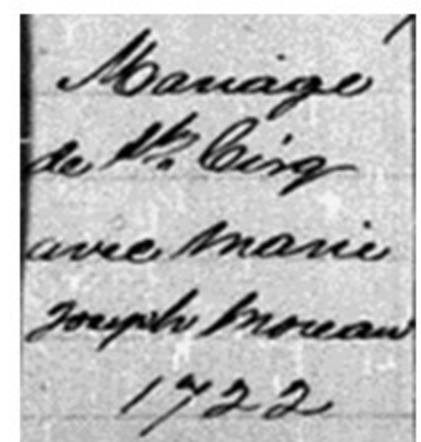 Mariage
de Cirq
avec Marie
Joseph Moreau
1722